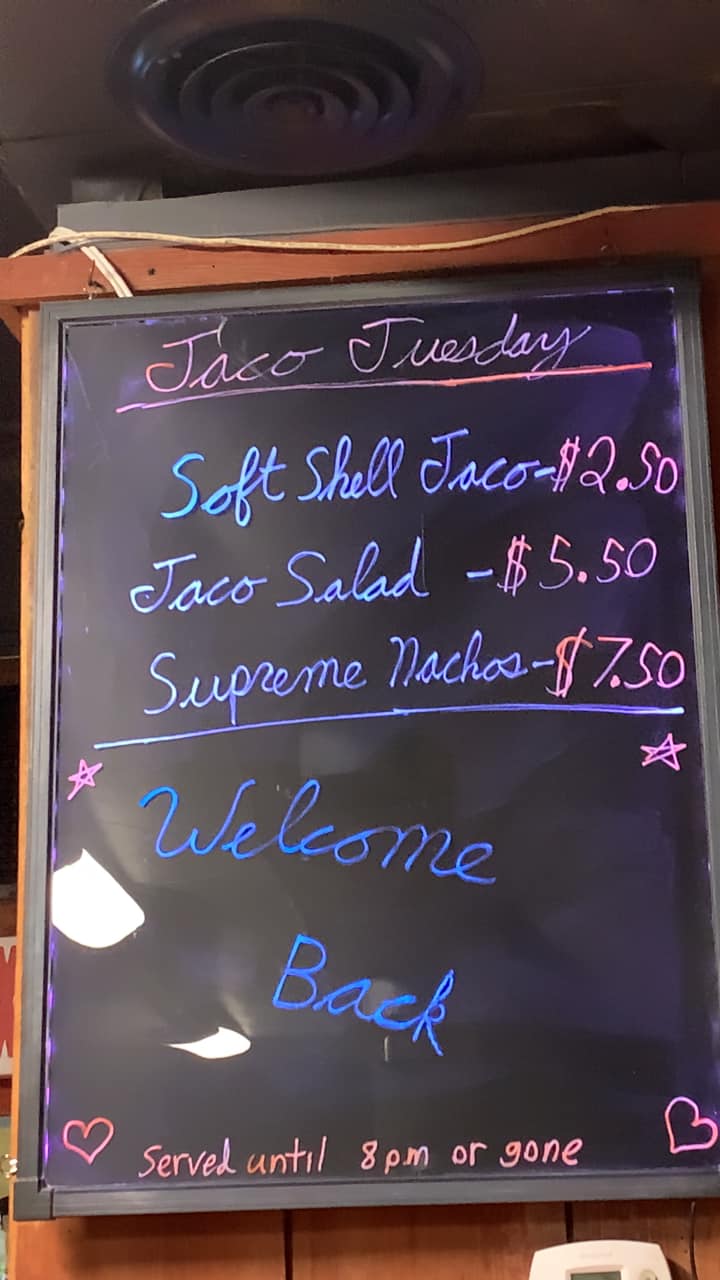 Taco Tuesday
Soft Shell Taco-$2.50
Taco Salad -$5.50
Supreme Nachos-$7.50
Welcome
Back
Served until 8pm or gone